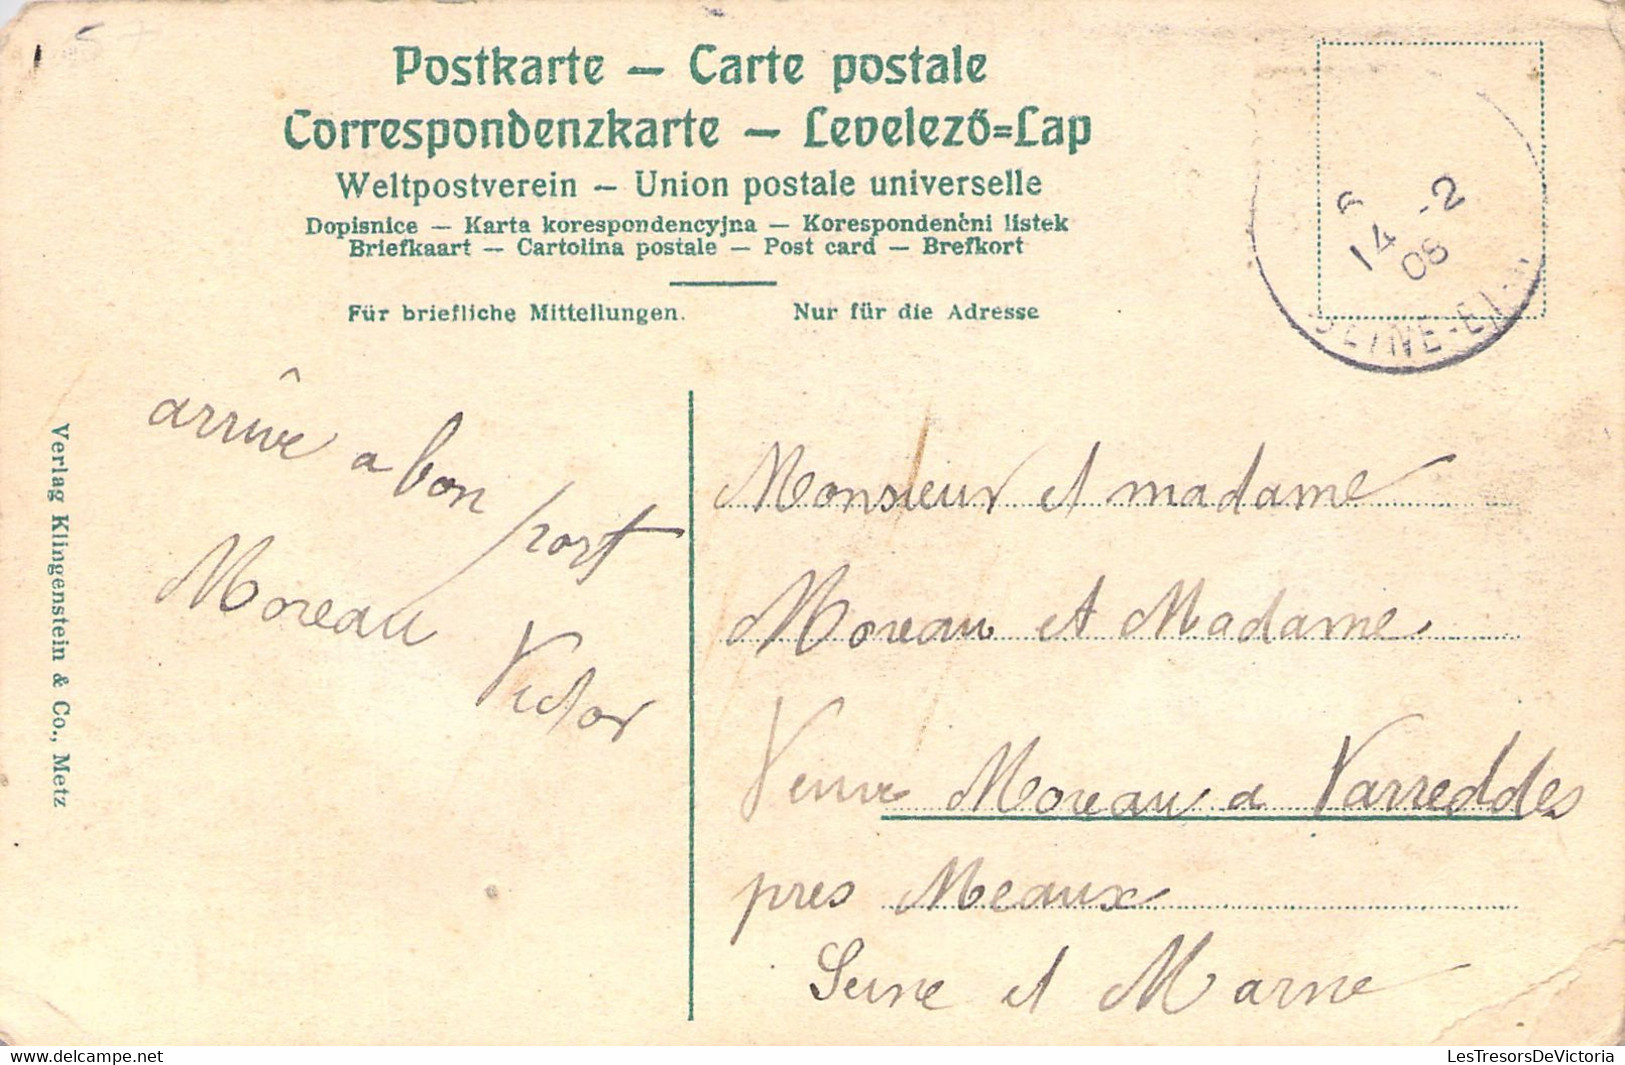 Postkarte — Carte postale
Correspondenzkarte — Levelező=Lap
Weltpostverein — Union postale universelle
Dopisnice — Karta korespondencyjna — Korespondenčni listek
Briefkaart — Cartolina postale — Post card — Brefkort
Für briefliche Mitteilungen.
Nur für die Adresse
14 -2
08
SEINE-ET-
arrive a bon port
Moreau Victor
Monsieur et madame
Moreau et Madame
Veuve Moreau a Varreddes
pres Meaux
Seine et Marne
Verlag Klingenstein & Co., Metz
LesTresorsDeVictoria